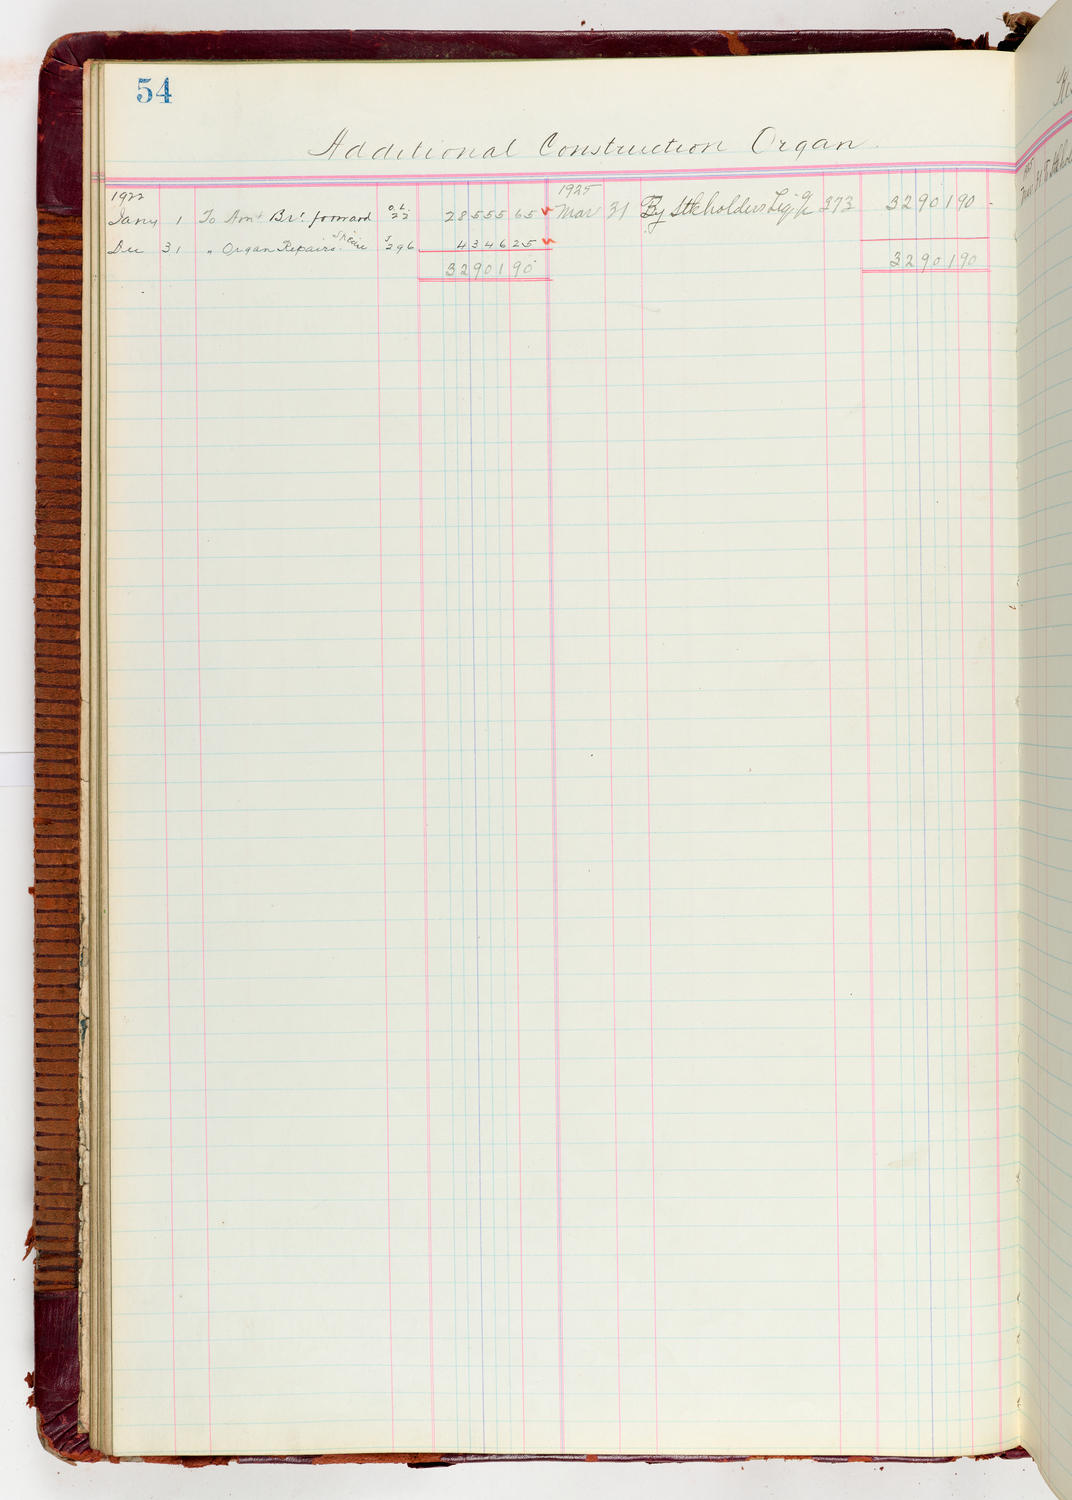 54
Additional Construction Organ
1922
Jany 1 To Amt Brt. forward O.L. 22 28555 65
Dec 31 " Organ Repairs J 296 4346 25
32901 90
1925
Mar 31 By Stkeholders Liq. 373 32901 90
32901 90